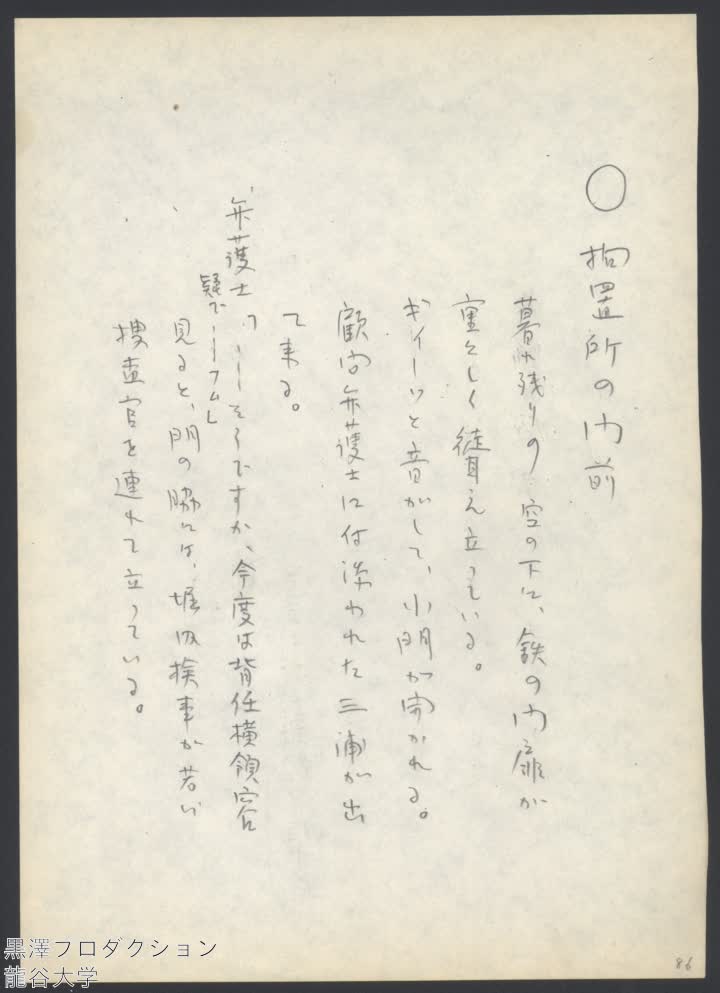 ○ 拘置所の門前
暮れ残りの空の下に、鉄の門扉が
重々しく聳え立っている。
ギイーッと音がして、小門が開かれる。
顧問弁護士に付添われた三浦が出
て来る。
弁護士「――そうですか、今度は背任横領容
疑で――フム」
見ると、門の脇には、堀内検事が若い
捜査官を連れて立っている。
86
黒澤プロダクション
龍谷大学